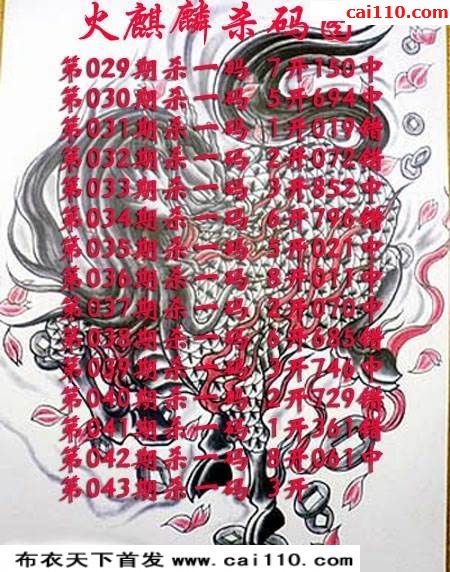 cai110.com
火麒麟杀码
第029期杀一码 7开150中
第030期杀一码 5开694中
第031期杀一码 1开019错
第032期杀一码 2开072错
第033期杀一码 3开852中
第034期杀一码 6开796错
第035期杀一码 5开021中
第036期杀一码 8开011中
第037期杀一码 2开070中
第038期杀一码 6开685错
第039期杀一码 3开746中
第040期杀一码 2开729错
第041期杀一码 1开361错
第042期杀一码 8开061中
第043期杀一码 3开
布衣天下首发 www.cai110.com